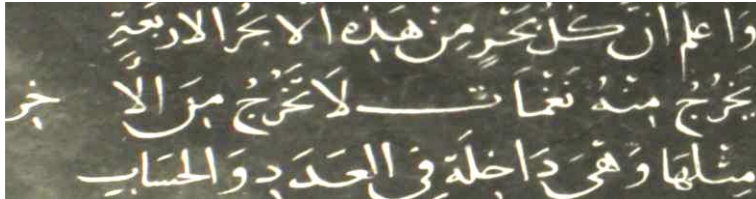 وَاعلم ان كُل بَحْرٍ مِنْ هَذِه الابحُر الاربعَةِ
يَخرُجُ مِنْهُ نَغمَات لَا تَخْرُجُ مِنَ الاٰخر
مِثلهَا وَهْىَ دَاخِلَة فى العَدَدِ وَالحسَاب